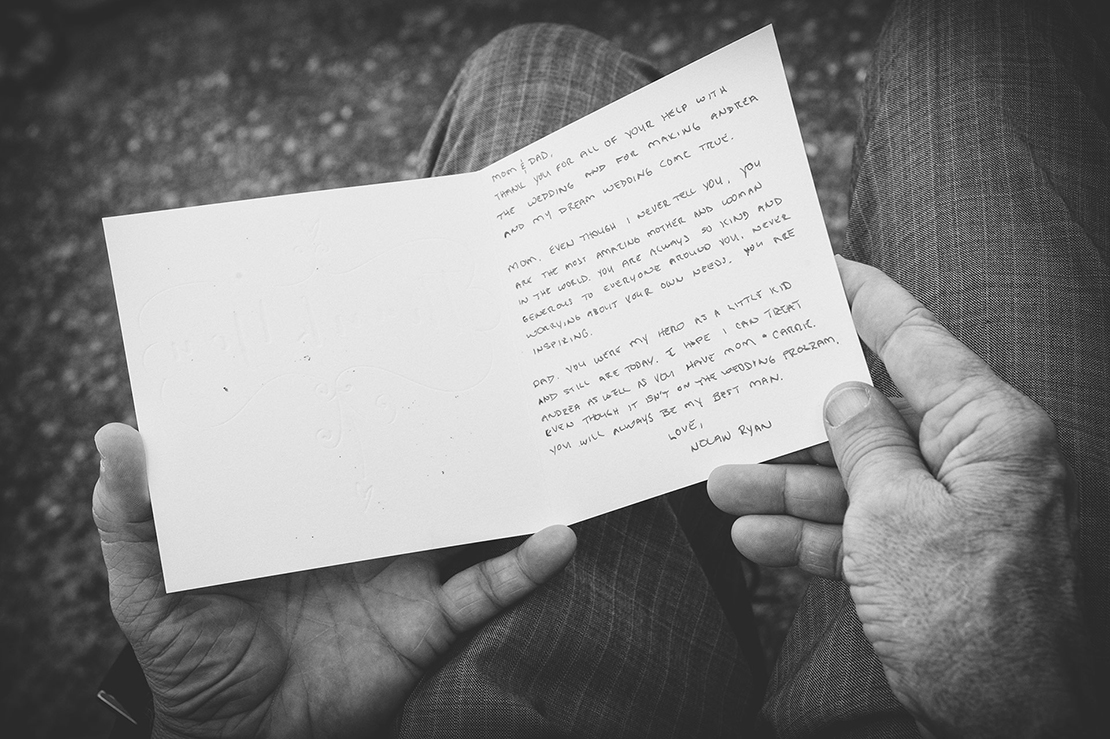 MOM & DAD,
THANK YOU FOR ALL OF YOUR HELP WITH
THE WEDDING AND FOR MAKING ANDREA
AND MY DREAM WEDDING COME TRUE.
MOM, EVEN THOUGH I NEVER TELL YOU, YOU
ARE THE MOST AMAZING MOTHER AND WOMAN
IN THE WORLD. YOU ARE ALWAYS SO KIND AND
GENEROUS TO EVERYONE AROUND YOU, NEVER
WORRYING ABOUT YOUR OWN NEEDS. YOU ARE
INSPIRING.
DAD, YOU WERE MY HERO AS A LITTLE KID
AND STILL ARE TODAY. I HOPE I CAN TREAT
ANDREA AS WELL AS YOU HAVE MOM & CARRIE.
EVEN THOUGH IT ISN'T ON THE WEDDING PROGRAM,
YOU WILL ALWAYS BE MY BEST MAN.
LOVE,
NOLAN RYAN